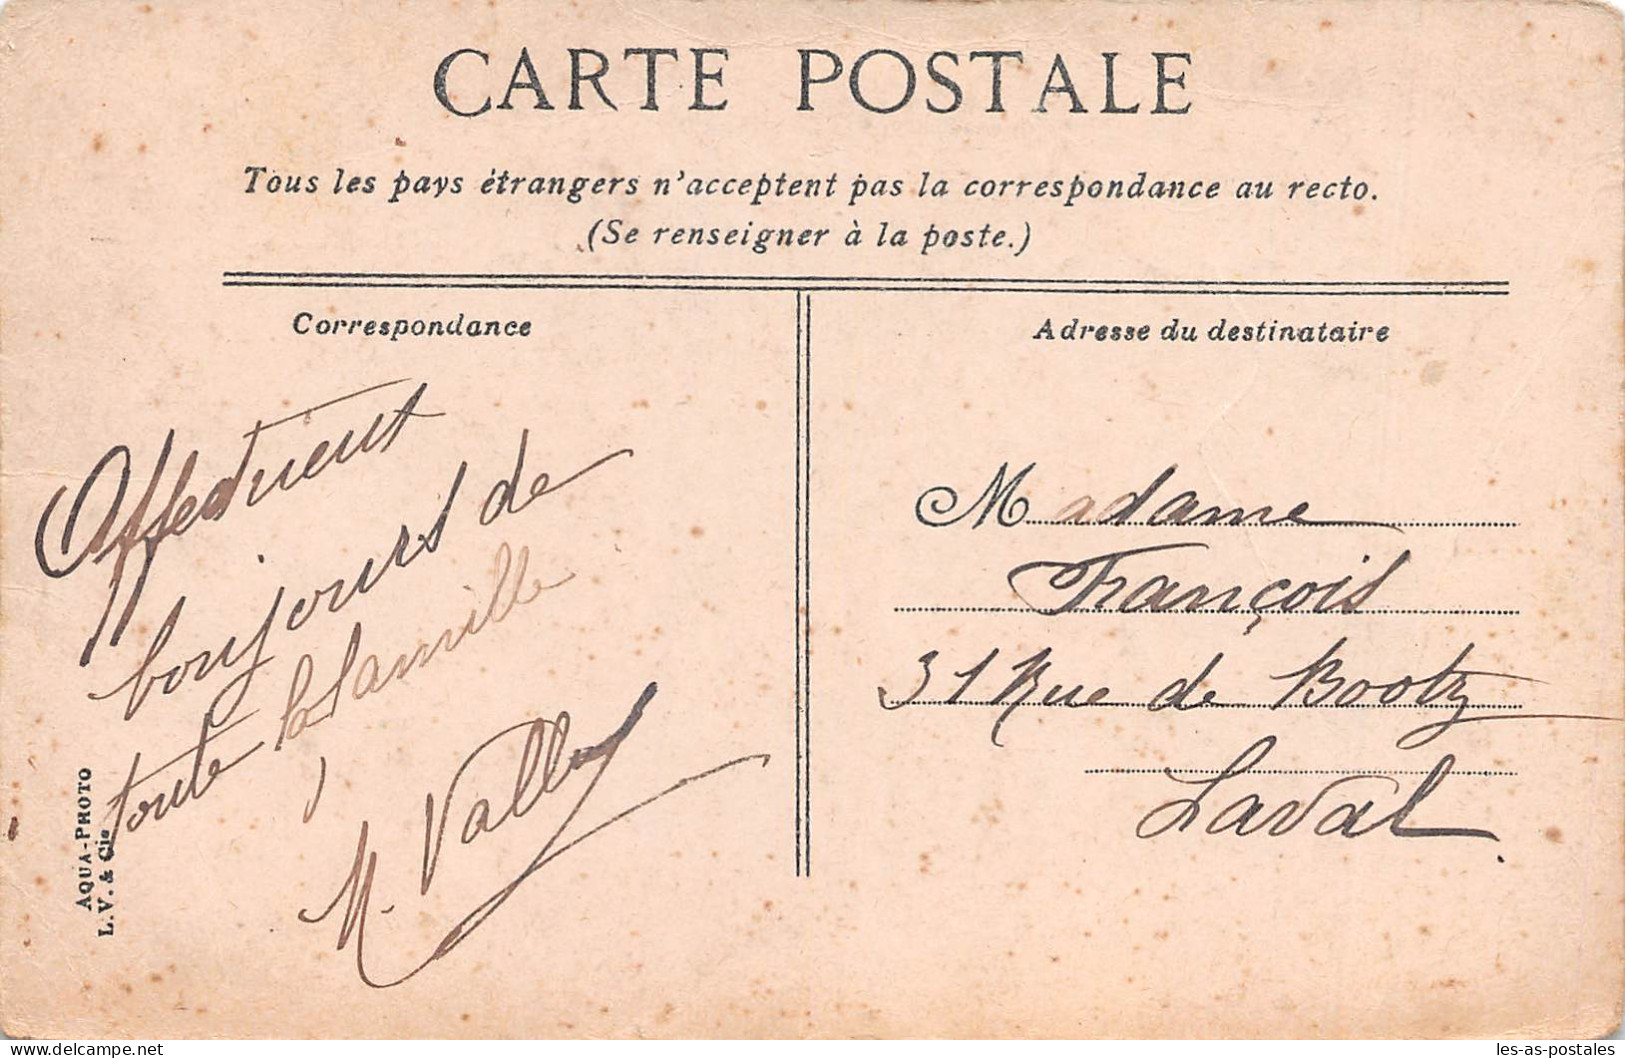 CARTE POSTALE
Tous les pays étrangers n'acceptent pas la correspondance au recto.
(Se renseigner à la poste.)
Correspondance
Affectueux
bonjours de
toute la famille
M. Vallé
Adresse du destinataire
Madame
François
31 Rue de Bootz
Laval.
AQUA-PHOTO
L. V. & Cie
les-as-postales